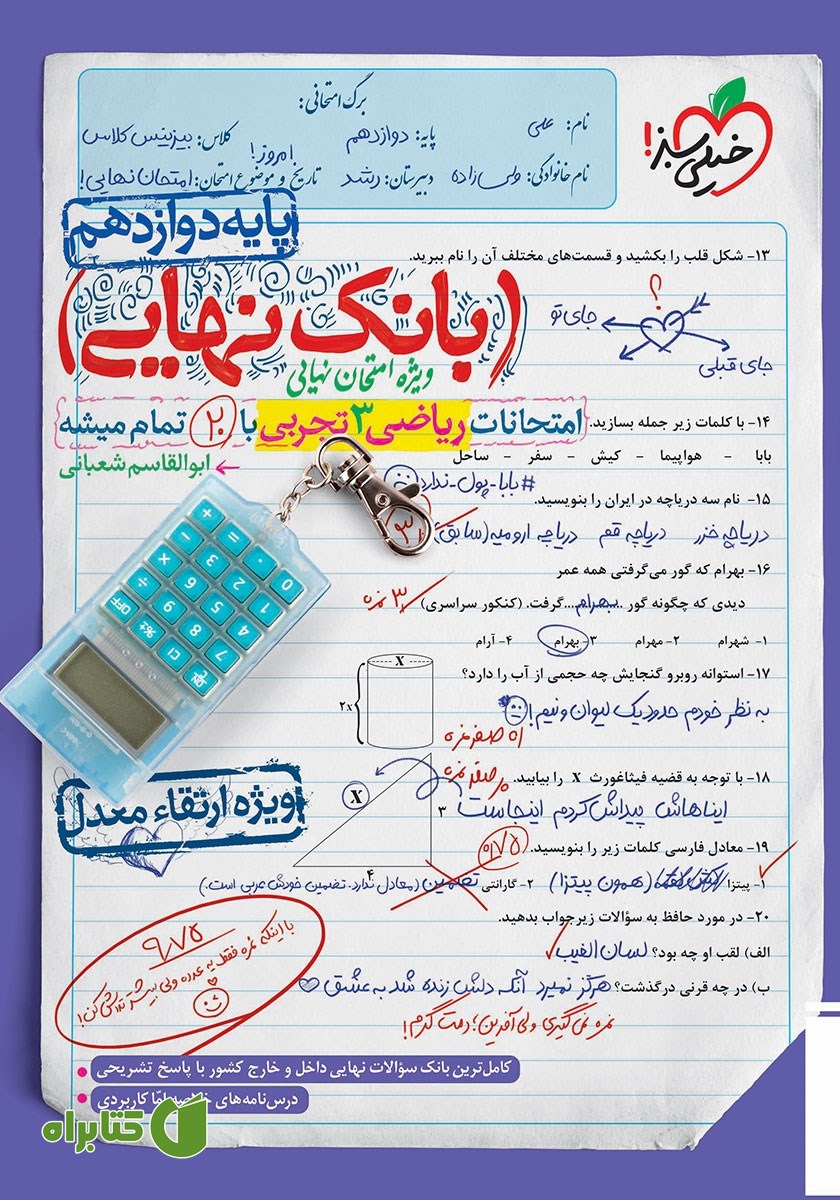 خیلی سبز!
برگ امتحانی:
نام: علی
پایه: دوازدهم
کلاس: بیزینس کلاس
نام خانوادگی: ولی زاده
دبیرستان: رشد
تاریخ و موضوع امتحان: امتحان نهایی!
امروز!
پایه دوازدهم
۱۳- شکل قلب را بکشید و قسمت‌های مختلف آن را نام ببرید.
(بانک نهایی)
؟
جای تو
جای قبلی
ویژه امتحان نهایی
امتحانات ریاضی ۳ تجربی با ۲۰ تمام میشه
ابوالقاسم شعبانی
۱۴- با کلمات زیر جمله بسازید.
بابا - هواپیما - کیش - سفر - ساحل
#بابا-پول-ندارد
۱۵- نام سه دریاچه در ایران را بنویسید.
دریاچه خزر دریاچه قم دریاچه ارومیه (سابق)
۳
۱۶- بهرام که گور می‌گرفتی همه عمر
دیدی که چگونه گور ...بهرام... گرفت. (کنکور سراسری)
۳ نمره
۱- شهرام ۲- مهرام ۳- بهرام ۴- آرام
۱۷- استوانه روبرو گنجایش چه حجمی از آب را دارد؟
X
۲x
به نظر خودم حدود یک لیوان و نیم!
اه صفر نمره
۱۸- با توجه به قضیه فیثاغورث X را بیابید.
صفر نمره
ایناهاش پیداش کردم اینجاست
X
۳
۴
۱۹- معادل فارسی کلمات زیر را بنویسید.
۰/۷۵
۱- پیتزا (همون پیتزا) ۲- گارانتی تضمین (معادل ندارد. تضمین خودش عربی است.)
۲۰- در مورد حافظ به سؤالات زیر جواب بدهید.
الف) لقب او چه بود؟ لسان الغیب
ب) در چه قرنی درگذشت؟ هرگز نمیرد آنکه دلش زنده شد به عشق
نمره نمی‌گیری ولی آفرین؛ دمت گرم!
ویژه ارتقاء معدل
۹/۷۵
با اینکه نمره فقط یه عدده ولی بیشتر تلاش کن!
کامل‌ترین بانک سؤالات نهایی داخل و خارج کشور با پاسخ تشریحی
درس‌نامه‌های خلاصه امّا کاربردی
کتابراه
+ = . 0
- 3 2 1
× 6 5 4
÷ 9 8 7
OFF %± C! ON